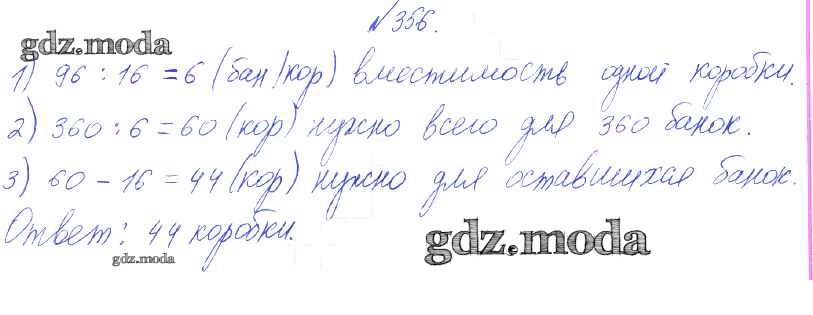 №356.
gdz.moda
1) 96 : 16 = 6 (бан/кор) вместимость одной коробки.
2) 360 : 6 = 60 (кор) нужно всего для 360 банок.
3) 60 - 16 = 44 (кор) нужно для оставшихся банок.
Ответ: 44 коробки.
gdz.moda
gdz.moda